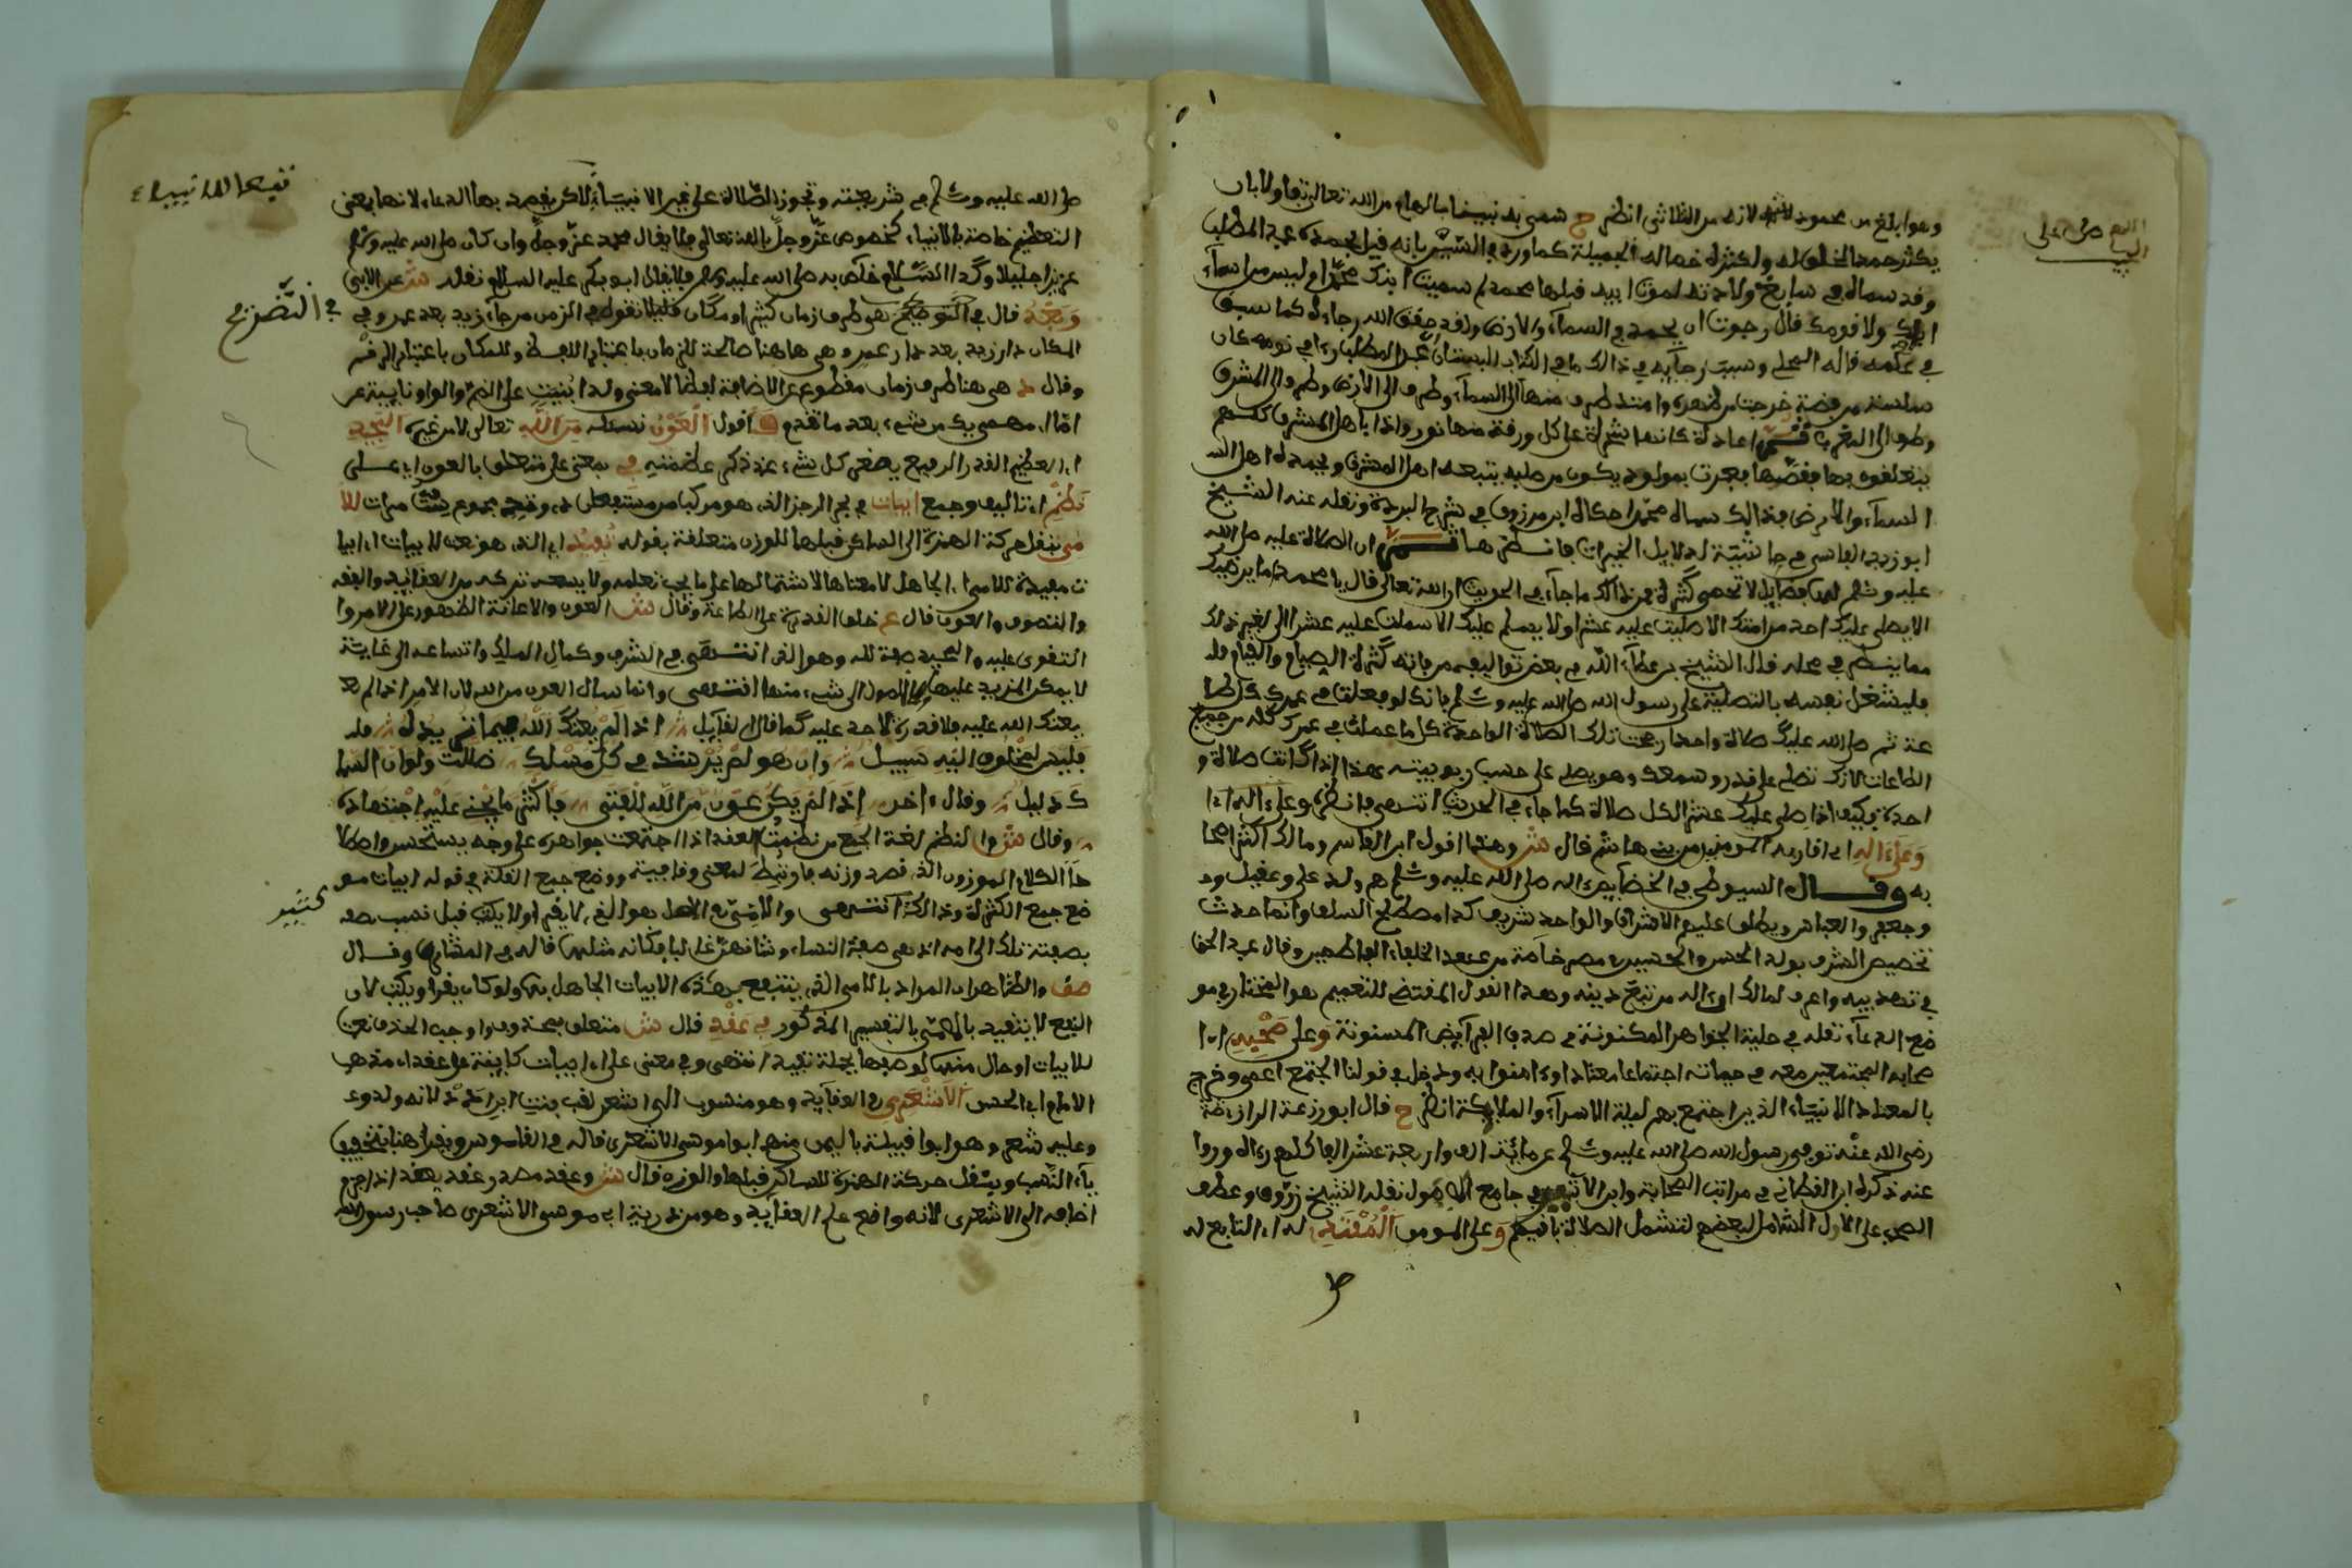 وهو ابلغ من محمود لانه من الثلاثي انظر ح سمي به نبينا بالهام من الله تعالى تفاولا بان
يكثر حمد الخلق له ولكثرة خصاله الجميلة كما ورد في السير بانه قيل لجده عبد المطلب
وقد سماه في سابع ولادته لموت ابيه قبلها محمد لم سميت ابنك محمدا وليس من اسماء
ابائك ولا قومك قال رجوت ان يحمد في السماء والارض وقد حقق الله رجاءه كما سبق
في علمه قاله المحلي وسبب رجايه في ذالك ما في عبد المطلب راى في نومه كان
سلسلة من فضة خرجت من ظهره وامتد طرف منها الى السماء وطرف الى الارض وطرف الى المشرق
وطرف الى المغرب ثم عادت كانها شجرة على كل ورقة منها نور واذا باهل المشرق كلهم
يتعلقون بها فقصها فعبرت بمولود يكون من صلبه يتبعه اهل المشرق ويحمده اهل
السماء والارض فذالك سماه محمدا حكاه ابن مرزوق في شرح البردة ونقله عنه الشيخ
ابو زيد الفاسي في حاشية دلايل الخيرات فانظرها ان الصلاة عليه صلى الله
عليه وسلم لها فضايل لا تحصى كثرة فمن ذالك ما جاء في الحديث ان الله تعالى قال يا محمد اما يرضيك
الا يصلي عليك احد من امتك الا صليت عليه عشرا ولا يسلم عليك الا سلمت عليه عشرا الى غير ذلك
مما ينظر في محله قال الشيخ بن عطاء الله في بعض تواليفه من فاته كثرة الصيام والقيام
فليشغل نفسه بالتصلية على رسول الله صلى الله عليه وسلم فانك لو فعلت في عمرك كل طا
عة ثم صلى الله عليك صلاة واحدة رجحت تلك الصلاة الواحدة كل ما عملت في عمرك كله من جميع
الطاعات لانك تصلي على قدر وسعك وهو يصلي على حسب ربوبيته هذا اذا كانت صلاة و
احدة فكيف اذا صلى عليك عشرا لكل صلاة كما جاء في الحديث انتهى فانظره وعلى اله
وعلى اله اي اقاربه المومنين من بني هاشم قال ش وهذا قول ابن القاسم ومالك اكثر اصحا
به وقال السيوطي في الخصايص اله صلى الله عليه وسلم هم ولد علي وعقيل و
وجعفر والعباس ويطلق عليهم الاشراف والواحد شريف كذا مصطلح السلف وانما حدث
تخصيص الشرف بولد الحسن والحسين في مصر خاصة من عهد الخلفاء الفاطميين وقال عبد الحق
في تهذيبه واعرف لمالك ان اله من تبع دينه وهذا القول المقتضي للتعميم هو المختار في مو
ضع الدعاء نقله في حلية الجواهر المكنونة في صدف الفرائض المسنونة وعلى صحبه اي ا
صحابه المجتمعين معه في حياته اجتماعا معتادا وامنوا به ودخل في قولنا اجتمع اعمى وخرج
بالمعتاد الانبياء الذين اجتمع بهم ليلة الاسراء والملايكة انظر ح قال ابو زرعة الرازي
رضي الله عنه توفي رسول الله صلى الله عليه وسلم عن ماية الف واربعة عشر الفا كلهم راه وروا
عنه ذكره ابن القطان في مراتب الصحابة وابن الاثير في جامع الاصول نقله الشيخ زروق وعطف
الصحب على الال الشامل لبعضهم لتشمل الصلاة باقيهم وعلى المومن المقتدي له اي التابع له
اللهم صل على
ط
صلى الله عليه وسلم في شريعته وتجوز الصلاة على غير الانبياء لاكن يقصد بها الدعاء لانها بمعنى
التعظيم خاصة بالانبياء كخصوص عز وجل بالله تعالى فلا يقال محمد عز وجل وان كان صلى الله عليه وسلم
عزيزا جليلا وكذا السلام خاص به صلى الله عليه وسلم فلا يقال ابو بكر عليه السلام نقله ش عن الابي
وبعد قال في التوضيح هو ظرف زمان كثيرا ومكان قليلا تقول في الزمن جاء زيد بعد عمرو وفي
المكان دار زيد بعد دار عمرو وهي هاهنا صالحة للزمان باعتبار اللفظ وللمكان باعتبار الرقم
وقال هي هنا ظرف زمان مقطوع عن الاضافة لفظا لا معنى ولذا بنيت على الضم والواو نايبة عن
اما اي مهما يك من شيء بعد ما تقدم فاقول العون نسئله من الله تعالى لا من غيره المجيد
اي العظيم القدر الرفيع يصغر كل شيء عند ذكر عظمته في بمعنى على متعلق بالعون اي على
نظم اي تاليف وجمع ابيات في بحر الرجز الذي هو مركب من مستفعلن ست مرات للا
مي بنقل حركة الهمزة الى الساكن قبلها للوزن متعلقة بقوله تفيد اي الذي هو نعت لابيات اي ابيا
ت مفيدة للامي اي الجاهل لا معناها لاشتمالها على ما يجب تعلمه ولا يسعه تركه من العقايد والفقه
والتصوف والعون قال ع خلق القدرة على الطاعة وقال ش العون والاعانة الظهور على الامر وا
لتقوى عليه والمجيد صفة لله وهو الذي انتهى في الشرف وكمال الملك واتساعه الى غاية
لا يمكن المزيد عليها ولا الوصول الى شيء منها انتهى وانما سال العون من الله لان الامر اذا لم
يعنك الله عليه فلا قدرة لاحد عليه كما قال القايل اذا لم يعنك الله فيما تريده
فليس لمخلوق اليه سبيل وان هو لم يرشدك في كل مسلك ضللت ولو ان السما
ك دليل وقال اخر اذا لم يكن عون من الله للفتى فاكثر ما يجني عليه اجتهاده
وقال ش والنظم لغة الجمع من نظمت العقد اذا اجتمعت جواهره على وجه يستحسن واصطلا
حا الكلام الموزون الذي قصد وزنه فارتبط لمعنى وقافية ووضع جمع القلة في قوله ابيات مو
ضع جمع الكثرة وذالك كثير انتهى والامي في الاصل هو الذي لا يقرا ولا يكتب قيل نسب
بصفته تلك الى امه اذ هي صفة النساء وشانهن غالبا فكانه مثلهن قاله في المشارق وقال
والظاهر ان المراد بالامي الذي ينتفع بهذه الابيات الجاهل ولو كان يقرا ويكتب لان
النفع لا يتقيد بالامي بالتفسير المذكور في عقد قال ش متعلق بمحذوف واجب الحذف نعت
للابيات او حال منها لوصفها بجملة تفيد انتهى وفي معنى على اي ابيات كاينة على عقد اي مذهب
الامام ابي الحسن الاشعري في العقايد وهو منسوب الى اشعر لقب نبت ابن ادد لانه ولد و
وعليه شعر وهو ابو قبيلة باليمن منهم ابو موسى الاشعري قاله في القاموس ويقرا هنا بتخفيف
ياء النسب وبنقل حركة الهمزة للساكن قبلها والوزن قال ش وعقد مصدر عقد يعقد اذا جزم
اضافه الى الاشعري لانه واضع علم العقايد وهو من ذرية ابي موسى الاشعري صاحب رسول الله
في التصريح
كثير